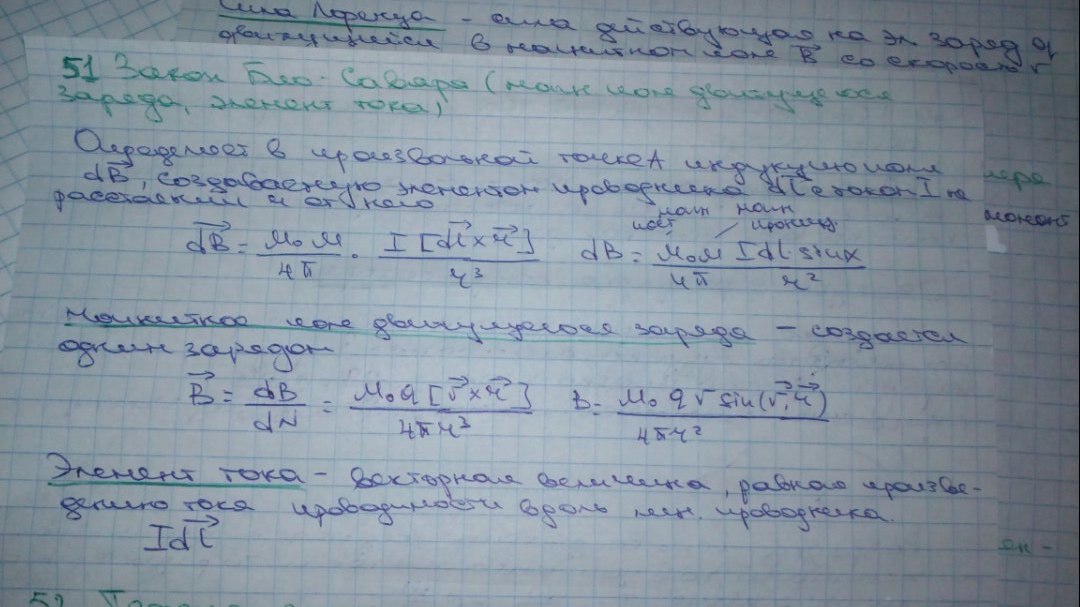 Сила Лоренца - сила действующая на эл заряд q
движущийся в магнитном поле B⃗ со скорость v
51 Закон Био-Савара (магн поле движущегося
заряда, элемент тока)
Определяет в произвольной точке A индукцию поля
dB⃗, создаваемую элементом проводника dl⃗ с током I на
расстоянии r от него
пост магн магн прониц
dB⃗ = μ₀μ/4π · I[dl⃗×r⃗]/r³ dB = μ₀μ/4π Idl·sinα/r²
Магнитное поле движущегося заряда - создается
одним зарядом
B⃗ = dB/dN = μ₀q[v⃗×r⃗]/4πr³ B = μ₀qv sin(v⃗,r⃗)/4πr²
Элемент тока - векторная величина, равная произве-
дению тока проводимости вдоль лин. проводника.
Idl⃗
мера
момент
52